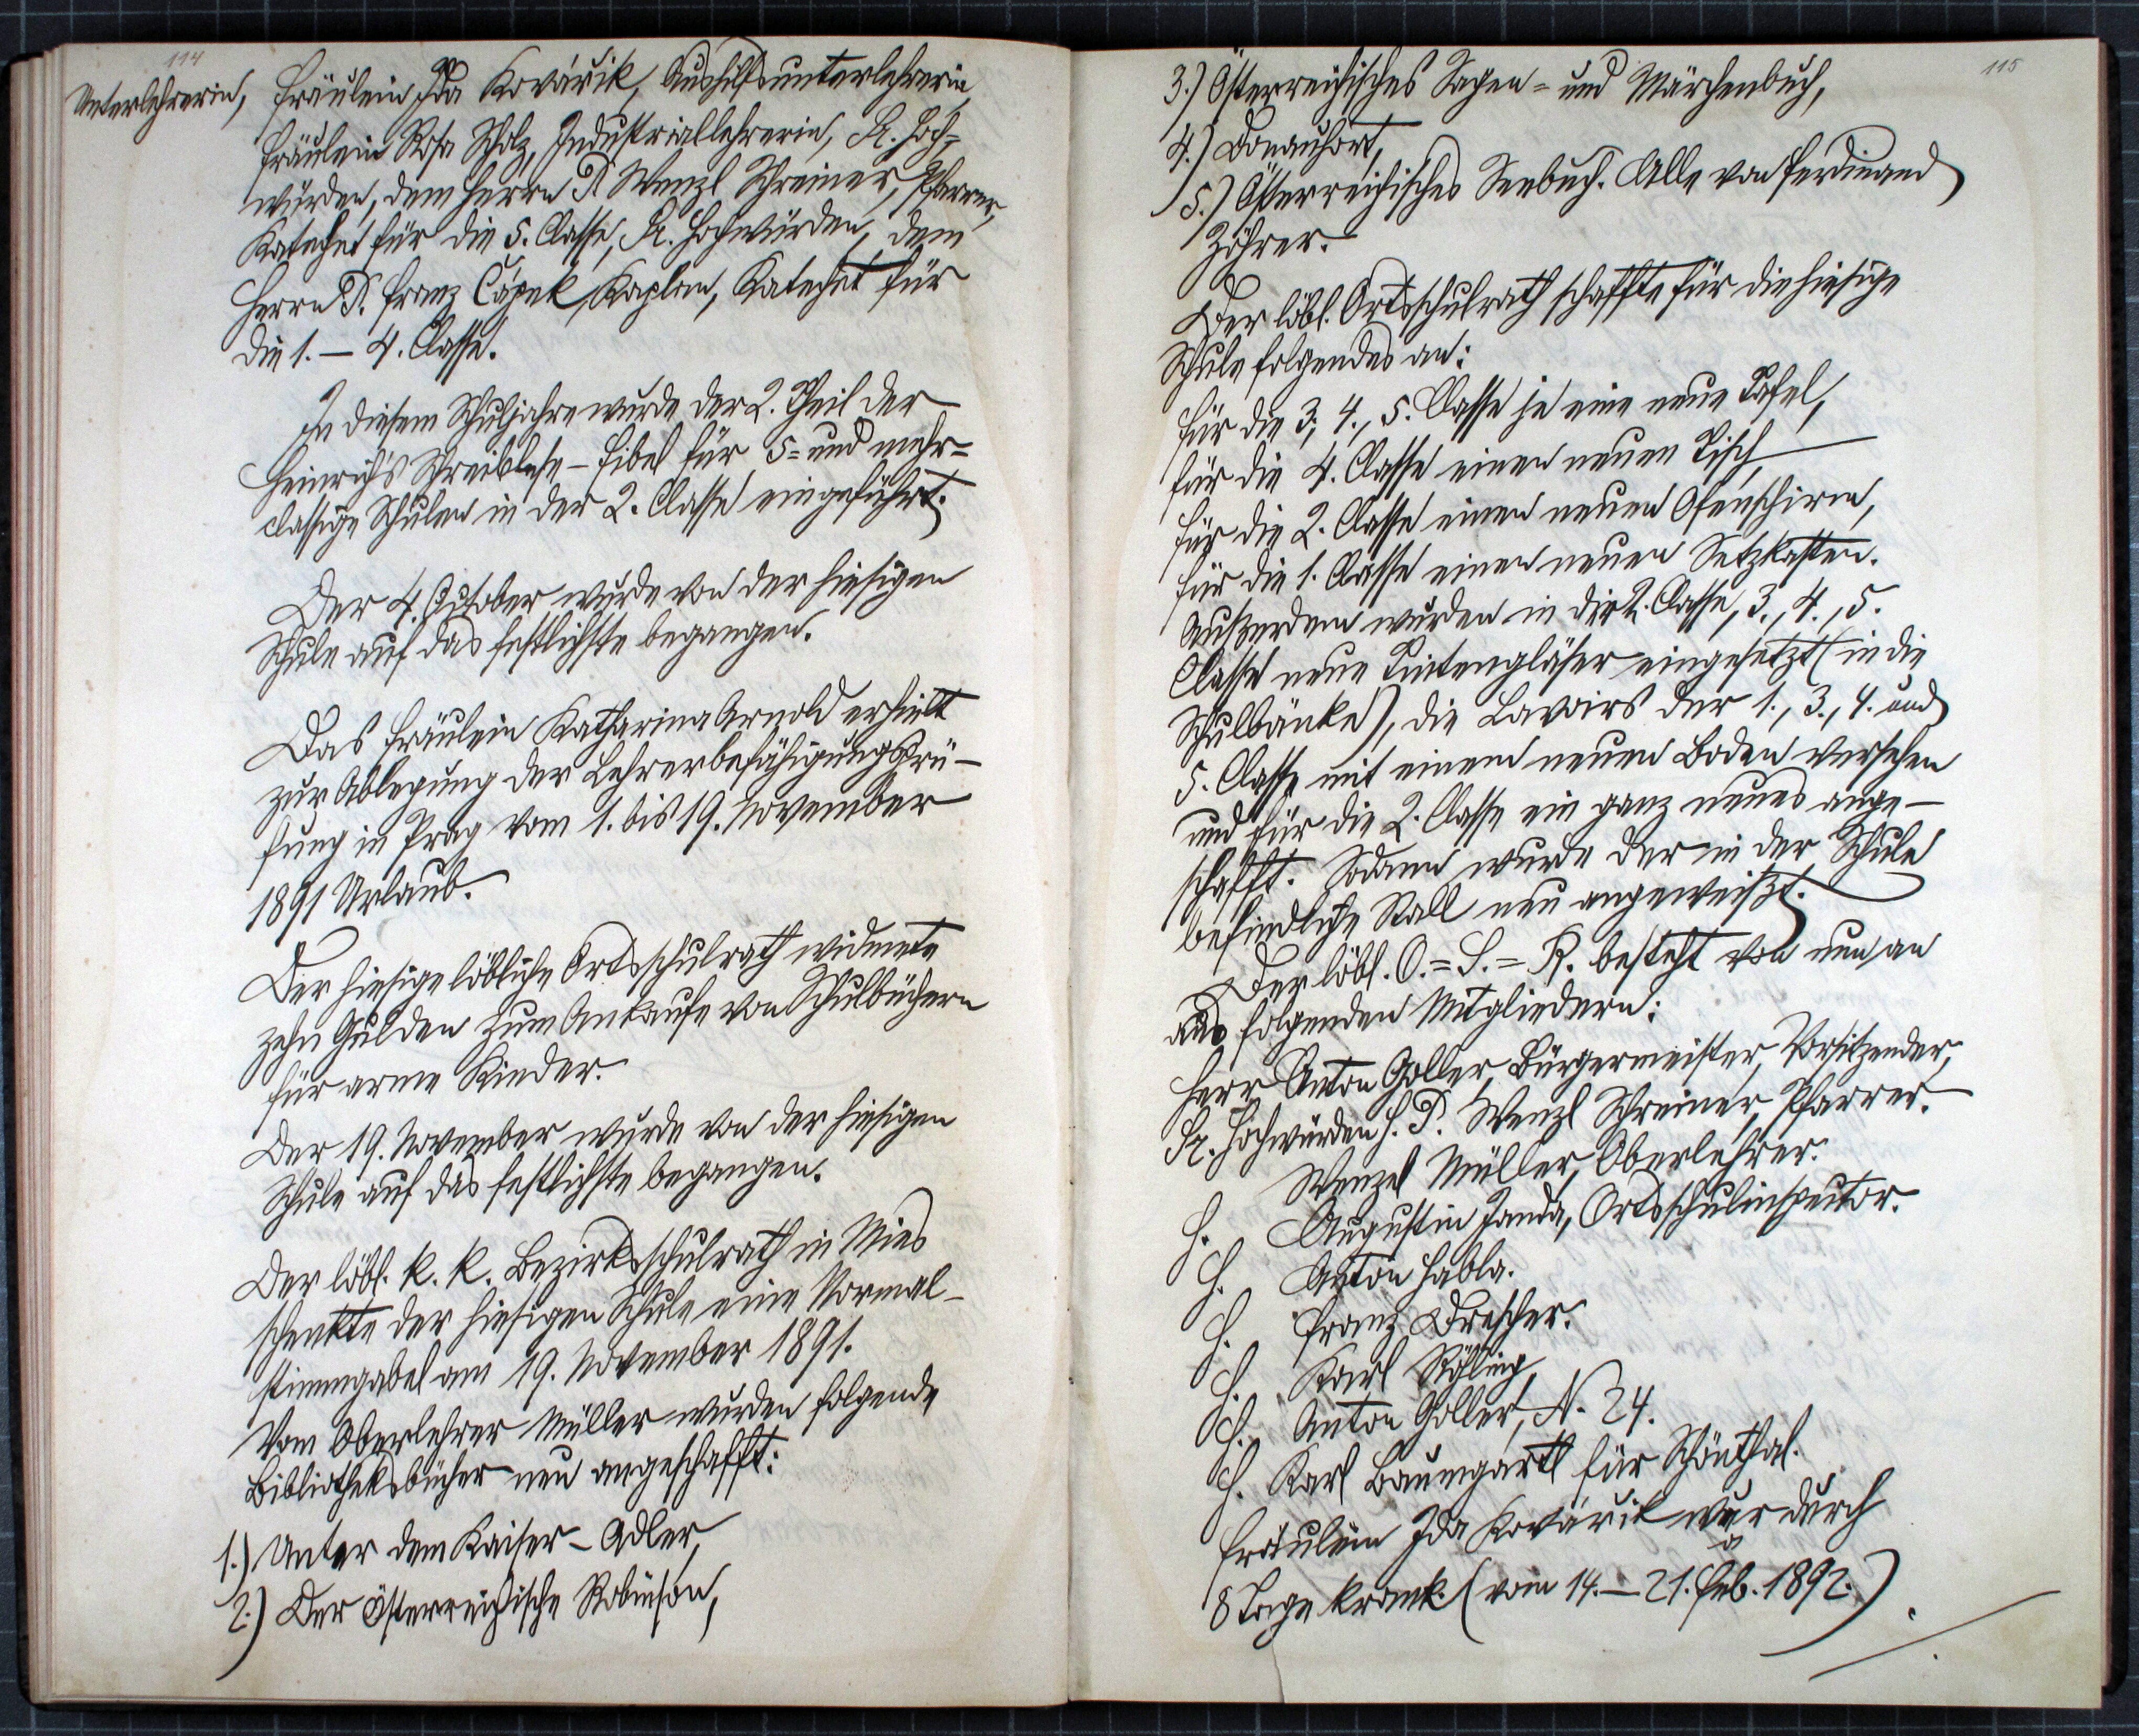 114
Unterlehrerin, Fräulein Ida Kovářik, Aushilfsunterlehrerin,
Fräulein Rosa Scholz, Industriallehrerin, Sr. Hoch-
würden, dem Herrn P. Wenzl Schreiner, Pfarrer,
Katechet für die 5. Classe, Sr. Hochwürden, dem
Herrn P. Franz Čapek, Kaplan, Katechet für
die 1. – 4. Classe.
In diesem Schuljahre wurde der 2. Theil der
Heinrich's Schreiblese-Fibel für 5= und mehr=
classige Schulen in der 2. Classe eingeführt.
Der 4. October wurde von der hiesigen
Schule auf das festlichste begangen.
Das Fräulein Katharina Arnold erhielt
zur Ablegung der Lehrerbefähigungsprü-
fung in Prag vom 1. bis 19. November
1891 Urlaub.
Der hiesige löbliche Ortsschulrath widmete
zehn Gulden zum Ankaufe von Schulbüchern
für arme Kinder.
Der 19. November wurde von der hiesigen
Schule auf das festlichste begangen.
Der löbl. k. k. Bezirksschulrath in Mies
schenkte der hiesigen Schule eine Normal-
stimmgabel am 19. November 1891.
Vom Oberlehrer Müller wurden folgende
Bibliotheksbücher neu angeschafft:
1.) Unter dem Kaiser-Adler,
2.) Der österreichische Robinson,
115
3.) Österreichisches Sagen= und Märchenbuch,
4.) Donauhort,
5.) Österreichisches Seebuch. Alle von Ferdinand
Zöhrer.
Der löbl. Ortsschulrath schaffte für die hiesige
Schule folgendes an:
Für die 3., 4., 5. Classe je eine neue Tafel,
für die 4. Classe einen neuen Tisch
für die 2. Classe einen neuen Ofenschirm,
für die 1. Classe einen neuen Setzkasten.
Außerdem wurden in die 2. Classe, 3., 4., 5.
Classe neue Tintengläser eingesetzt (in die
Schulbänke), die Lavoirs der 1., 3., 4. und
5. Classe mit einem neuen Boden versehen
und für die 2. Classe ein ganz neues ange-
schafft. Sodann wurde der in der Schule
befindliche Stall neu angeweißt.
Der löbl. O.=S.=R. besteht von nun an
aus folgenden Mitgliedern:
Herr Anton Goller, Bürgermeister, Vorsitzender,
Sr. Hochwürden H. P. Wenzl Schreiner, Pfarrer.
H. Wenzel Müller, Oberlehrer.
H. Augustin Janda, Ortsschulinspector.
H. Anton Habla.
H. Franz Drescher.
H. Karl Rösling,
H. Anton Goller, N. 24.
H. Karl Baumgartl für Schönthal.
Fräulein Ida Kovářik war durch
8 Tage krank. (vom 14. – 21. Feb. 1892.)